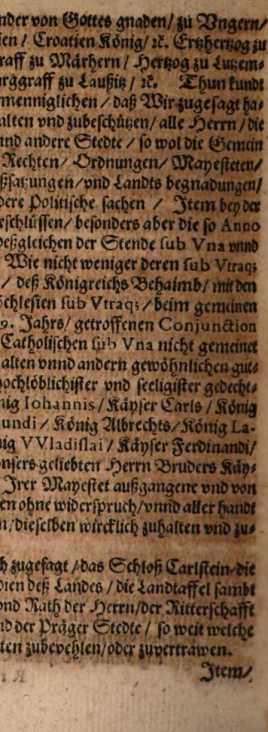 nder von Gottes gnaden/ zu Vngern/
ien / Croatien König/ ꝛc. Ertzhertzog zu
raff zu Märhern / Hertzog zu Lutzem-
arggraff zu Laußitz / ꝛc. Thun kundt
menniglichen / daß Wir zugesagt ha-
alten vnd zubeschützen/ alle Herrn / die
nnd andere Stedte / so wol die Gemein
Rechten / Ordnungen/ Mayesteten/
ßsatzungen/vnd Landts begnadungen/
dere Politische sachen / Item bey der
eschlüssen / besonders aber die so Anno
deßgleichen der Stende sub Vna vnnd
Wie nicht weniger deren sub Vtraq;
/ deß Königreichs Behaimb/ mit den
chlesien sub Vtraq; / beim gemeinen
9. Jahrs/ getroffenen Conjunction
Catholischen sub Vna nicht gemeinet
alten vnnd andern gewöhnlichen gut-
hochlöblichister vnd seeligister gedecht-
nig Iohannis / Käyser Carls / König
undi / König Albrechts / König La-
nig VVladislai / Käyser Ferdinandi/
vnsers geliebten Herrn Bruders Käy-
Irer Mayestet außgangene vnd von
en ohne widerspruch/ vnnd aller handt
n/ dieselben wircklich zuhalten vnd zu-
h zugesagt / das Schloß Carlstein die
dien deß Landes / die Landtaffel sambt
vnd Rath der Herrn/ der Ritterschafft
nd der Präger Stedte / so weit welche
ten zubevehlen/ oder zuvertrawen.
Item/